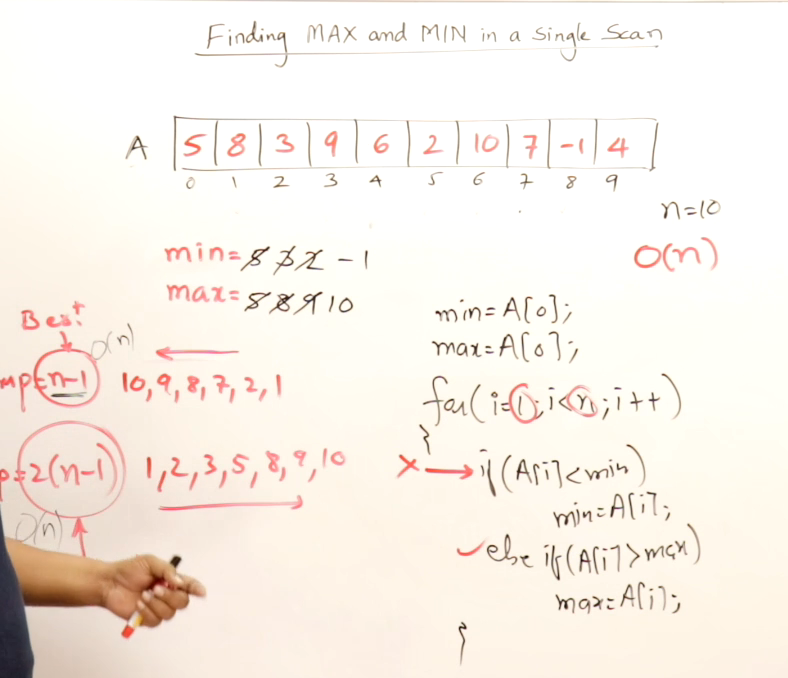 Finding MAX and MIN in a Single Scan
A 5 8 3 9 6 2 10 7 -1 4
0 1 2 3 4 5 6 7 8 9
n=10
O(n)
min= -1
max= 10
Best
O(n)
n-1 10, 9, 8, 7, 2, 1
=2(n-1) 1, 2, 3, 5, 8, 9, 10
O(n)
min=A[0];
max=A[0];
for(i=1;i<n;i++)
{
if(A[i]<min)
min=A[i];
else if(A[i]>max)
max=A[i];
}